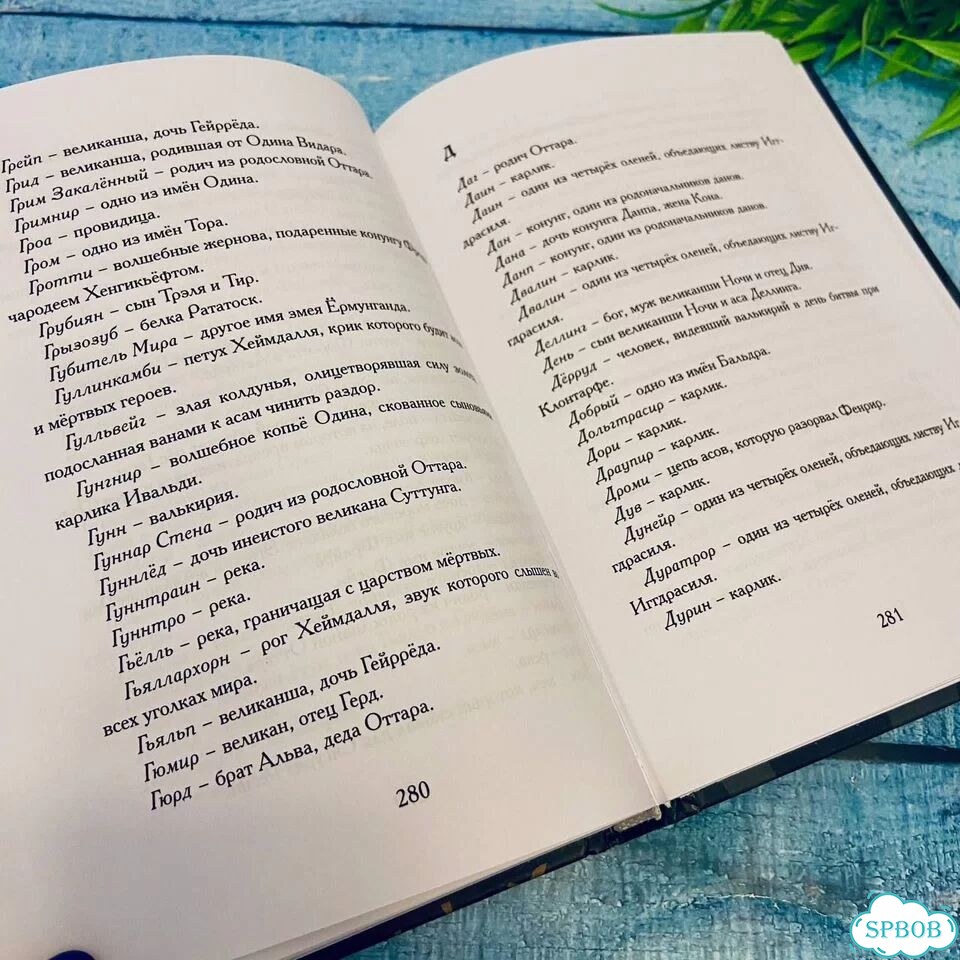 Грейп – великанша, дочь Гейррёда.
Грид – великанша, родившая от Одина Видара.
Грим Закалённый – родич из родословной Оттара.
Гримнир – одно из имён Одина.
Гроа – провидица.
Гром – одно из имён Тора.
Гротти – волшебные жернова, подаренные конунгу
чародеем Хенгикьёфтом.
Грубиян – сын Трэля и Тир.
Грызозуб – белка Рататоск.
Губитель Мира – другое имя змея Ёрмунганда.
Гуллинкамби – петух Хеймдалля, крик которого будит
и мёртвых героев.
Гулльвейг – злая колдунья, олицетворявшая силу
подосланная ванами к асам чинить раздор.
Гунгнир – волшебное копьё Одина, скованное сыновьями
карлика Ивальди.
Гунн – валькирия.
Гуннар Стена – родич из родословной Оттара.
Гуннлёд – дочь инеистого великана Суттунга.
Гуннтраин – река.
Гуннтро – река.
Гьёлль – река, граничащая с царством мёртвых.
Гьяллархорн – рог Хеймдалля, звук которого слышен в
всех уголках мира.
Гьяльп – великанша, дочь Гейррёда.
Гюмир – великан, отец Герд.
Гюрд – брат Альва, деда Оттара.
280
Д
Даг – родич Оттара.
Даин – карлик.
Даин – один из четырёх оленей, объедающих листву Игг-
драсиля.
Дан – конунг, один из родоначальников данов.
Дана – дочь конунга Данпа, жена Кона.
Данп – конунг, один из родоначальников данов.
Двалин – карлик.
Двалин – один из четырёх оленей, объедающих листву Иг-
гдрасиля.
Деллинг – бог, муж великанши Ночи и отец Дня.
День – сын великанши Ночи и аса Деллинга.
Дёрруд – человек, видевший валькирий в день битвы при
Клонтарфе.
Добрый – одно из имён Бальдра.
Дольгтрасир – карлик.
Дори – карлик.
Драупир – карлик.
Дроми – цепь асов, которую разорвал Фенрир.
Дув – карлик.
Дунейр – один из четырёх оленей, объедающих листву Иг-
гдрасиля.
Дуратрор – один из четырёх оленей, объедающих
Иггдрасиля.
Дурин – карлик.
281
SPBOB